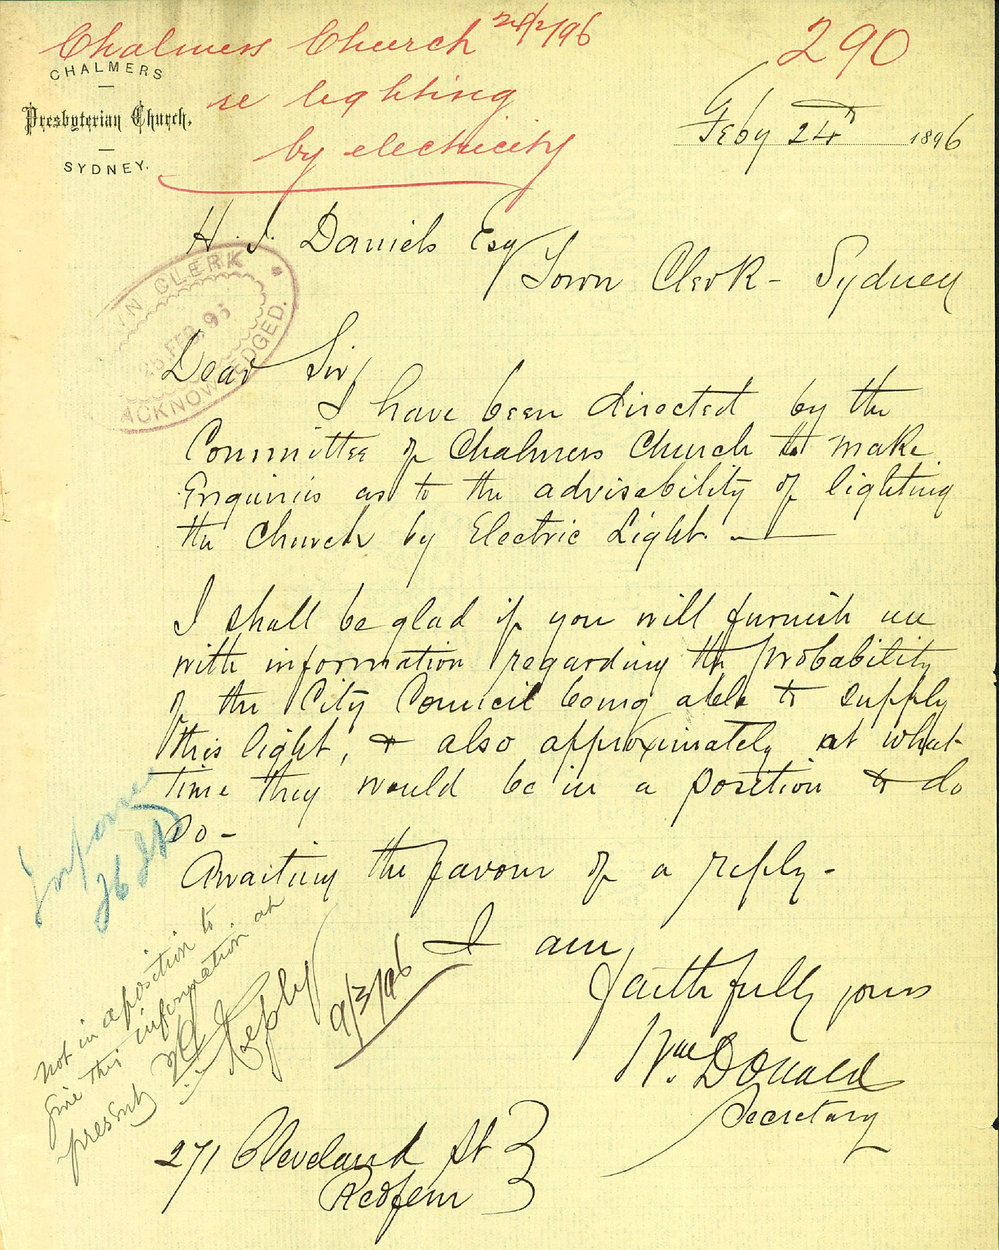 Chalmers Church 24/2/96
290
re lighting
by electricity
CHALMERS
Presbyterian Church,
SYDNEY.
Feby 24th 1896
H. J. Daniels Esq
Town Clerk - Sydney
TOWN CLERK
25 FEB. 96
ACKNOWLEDGED.
Dear Sir,
I have been directed by the
Committee of Chalmers Church to make
Enquiries as to the advisability of lighting
the Church by Electric Light. —
I shall be glad if you will furnish me
with information regarding the probability
of the City Council being able to supply
this light, & also approximately at what
time they would be in a position to do
so -
Awaiting the favour of a reply -
I am
Faithfully yours
Wm. Donald
Secretary
271 Cleveland St
Redfern
Inform
26
Not in a position to
give this information at
present
Reply
9/3/96